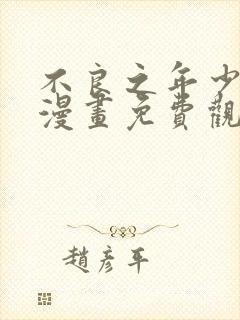 不良之年少
漫畫免費觀
趙彥平